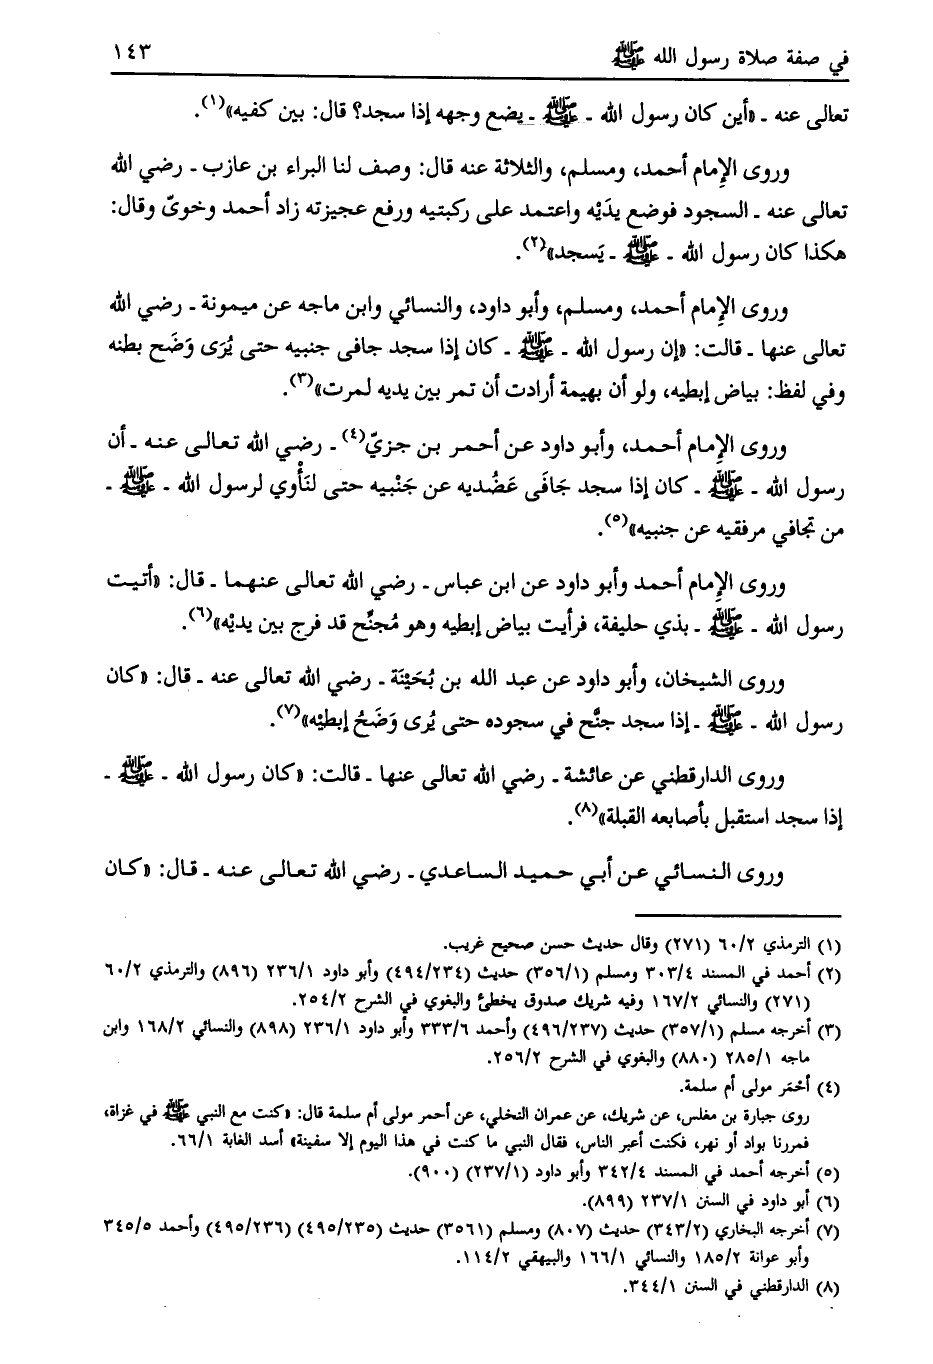 في صفة صلاة رسول الله ﷺ ١٤٣
تعالى عنه ـ «أين كان رسول الله ـ ﷺ ـ يضع وجهه إذا سجد؟ قال: بين كفيه»(١).
وروى الإمام أحمد، ومسلم، والثلاثة عنه قال: وصف لنا البراء بن عازب ـ رضي الله
تعالى عنه ـ السجود فوضع يدَيْه واعتمد على ركبتيه ورفع عجيزته زاد أحمد وخوىّ وقال:
هكذا كان رسول الله ـ ﷺ ـ يَسجد»(٢).
وروى الإمام أحمد، ومسلم، وأبو داود، والنسائي وابن ماجه عن ميمونة ـ رضي الله
تعالى عنها ـ قالت: «إن رسول الله ـ ﷺ ـ كان إذا سجد جافى جنبيه حتى يُرَى وَضَح بطنه
وفي لفظ: بياض إبطيه، ولو أن بهيمة أرادت أن تمر بين يديه لمرت»(٣).
وروى الإمام أحمد، وأبو داود عن أحمر بن جزيّ(٤) ـ رضي الله تعالى عنه ـ أن
رسول الله ـ ﷺ ـ كان إذا سجد جَافَى عَضُديه عن جَنْبيه حتى لنَأْوي لرسول الله ـ ﷺ ـ
من تجافي مرفقيه عن جنبيه»(٥).
وروى الإمام أحمد وأبو داود عن ابن عباس ـ رضي الله تعالى عنهما ـ قال: «أتيت
رسول الله ـ ﷺ ـ بذي حليفة، فرأيت بياض إبطيه وهو مُجنَّح قد فرج بين يديْه»(٦).
وروى الشيخان، وأبو داود عن عبد الله بن بُحَيْنَة ـ رضي الله تعالى عنه ـ قال: «كان
رسول الله ـ ﷺ ـ إذا سجد جنَّح في سجوده حتى يُرى وَضَحُ إبطيْه»(٧).
وروى الدارقطني عن عائشة ـ رضي الله تعالى عنها ـ قالت: «كان رسول الله ـ ﷺ ـ
إذا سجد استقبل بأصابعه القبلة»(٨).
وروى النسائي عن أبي حميد الساعدي ـ رضي الله تعالى عنه ـ قال: «كان
(١) الترمذي ٢/٦٠ (٢٧١) وقال حديث حسن صحيح غريب.
(٢) أحمد في المسند ٤/٣٠٣ ومسلم (١/٣٥٦) حديث (٢٣٤/٤٩٤) وأبو داود ١/٢٣٦ (٨٩٦) والترمذي ٢/٦٠
(٢٧١) والنسائي ٢/١٦٧ وفيه شريك صدوق يخطئ والبغوي في الشرح ٢/٢٥٤.
(٣) أخرجه مسلم (١/٣٥٧) حديث (٢٣٧/٤٩٦) وأحمد ٦/٣٣٣ وأبو داود ١/٢٣٦ (٨٩٨) والنسائي ٢/١٦٨ وابن
ماجه ١/٢٨٥ (٨٨٠) والبغوي في الشرح ٢/٢٥٦.
(٤) أحْمَر مولى أم سلمة.
روى جبارة بن مغلس، عن شريك، عن عمران النخلي، عن أحمر مولى أم سلمة قال: «كنت مع النبي ﷺ في غزاة،
فمررنا بواد أو نهر، فكنت أعبر الناس، فقال النبي ما كنت في هذا اليوم إلا سفينة» أسد الغابة ١/٦٦.
(٥) أخرجه أحمد في المسند ٤/٣٤٢ وأبو داود (١/٢٣٧) (٩٠٠).
(٦) أبو داود في السنن ١/٢٣٧ (٨٩٩).
(٧) أخرجه البخاري (٢/٣٤٣) حديث (٨٠٧) ومسلم (٣٥٦١) حديث (٢٣٥/٤٩٥) (٢٣٦/٤٩٥) وأحمد ٥/٣٤٥
وأبو عوانة ٢/١٨٥ والنسائي ١/١٦٦ والبيهقي ٢/١١٤.
(٨) الدارقطني في السنن ١/٣٤٤.